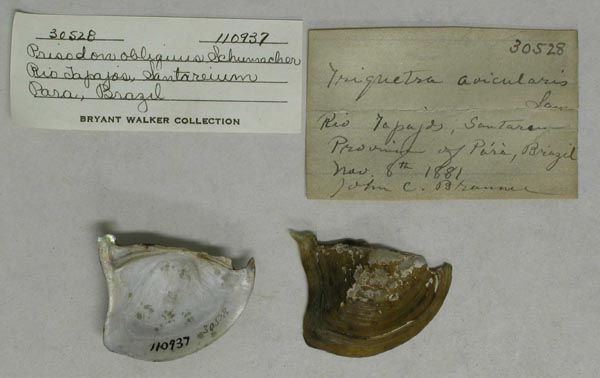 30528 110937
Prisodon obliquus Schumacher
Rio Tapajos Santareium
Para, Brazil
BRYANT WALKER COLLECTION
30528
Triquetra avicularis
Rio Tapajós, Santarem
Province of Pará, Brazil
Nov. 8th 1881
John C. Branner
110937
30528